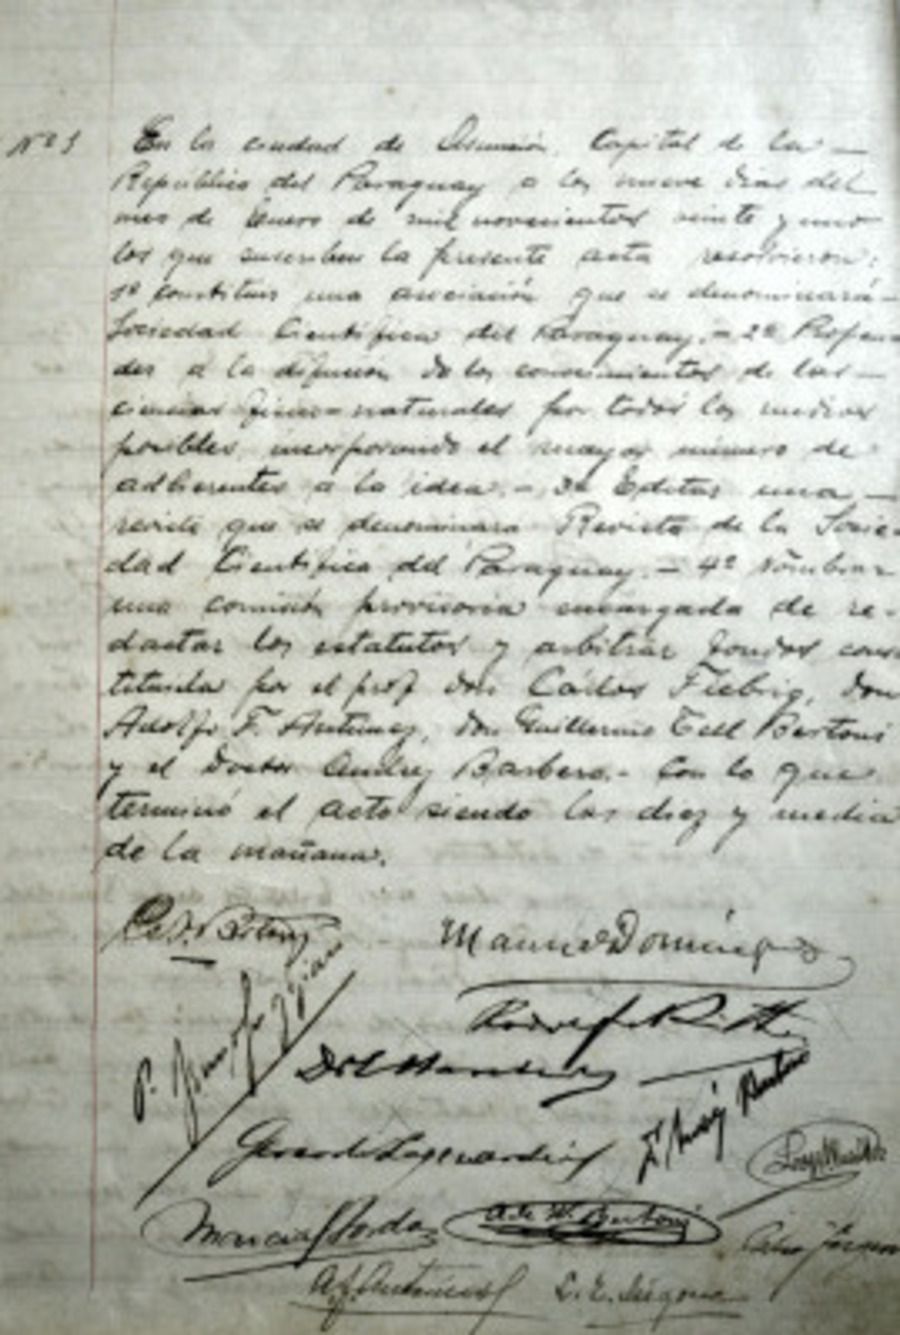 Nº 1
En la ciudad de Asunción, Capital de la —
República del Paraguay a los nueve dias del
mes de Enero de mil novecientos veinte y uno
los que suscriben la presente acta resolvieron:
1º constituir una asociación que se denominará —
Sociedad Científica del Paraguay. — 2º Propen
der a la difusión de los conocimientos de las —
ciencias físico-naturales por todos los medios
posibles, incorporando el mayor número de
adherentes a la idea. — 3º Editar una —
revista que se denominara Revista de la Socie-
dad Científica del Paraguay. — 4º Nombrar
una comisión provisoria encargada de re-
dactar los estatutos y arbitrar fondos cons
tituida por el prof don Carlos Fiebrig, don
Adolfo F. Antunez, don Guillermo Tell Bertoni
y el Doctor Andrés Barbero. — Con lo que
terminó el acto siendo las diez y media
de la mañana.
Manuel Dominguez
Rodolfo Ritter
Andrés Barbero
A. de W. Bertoni
A. F. Antunez